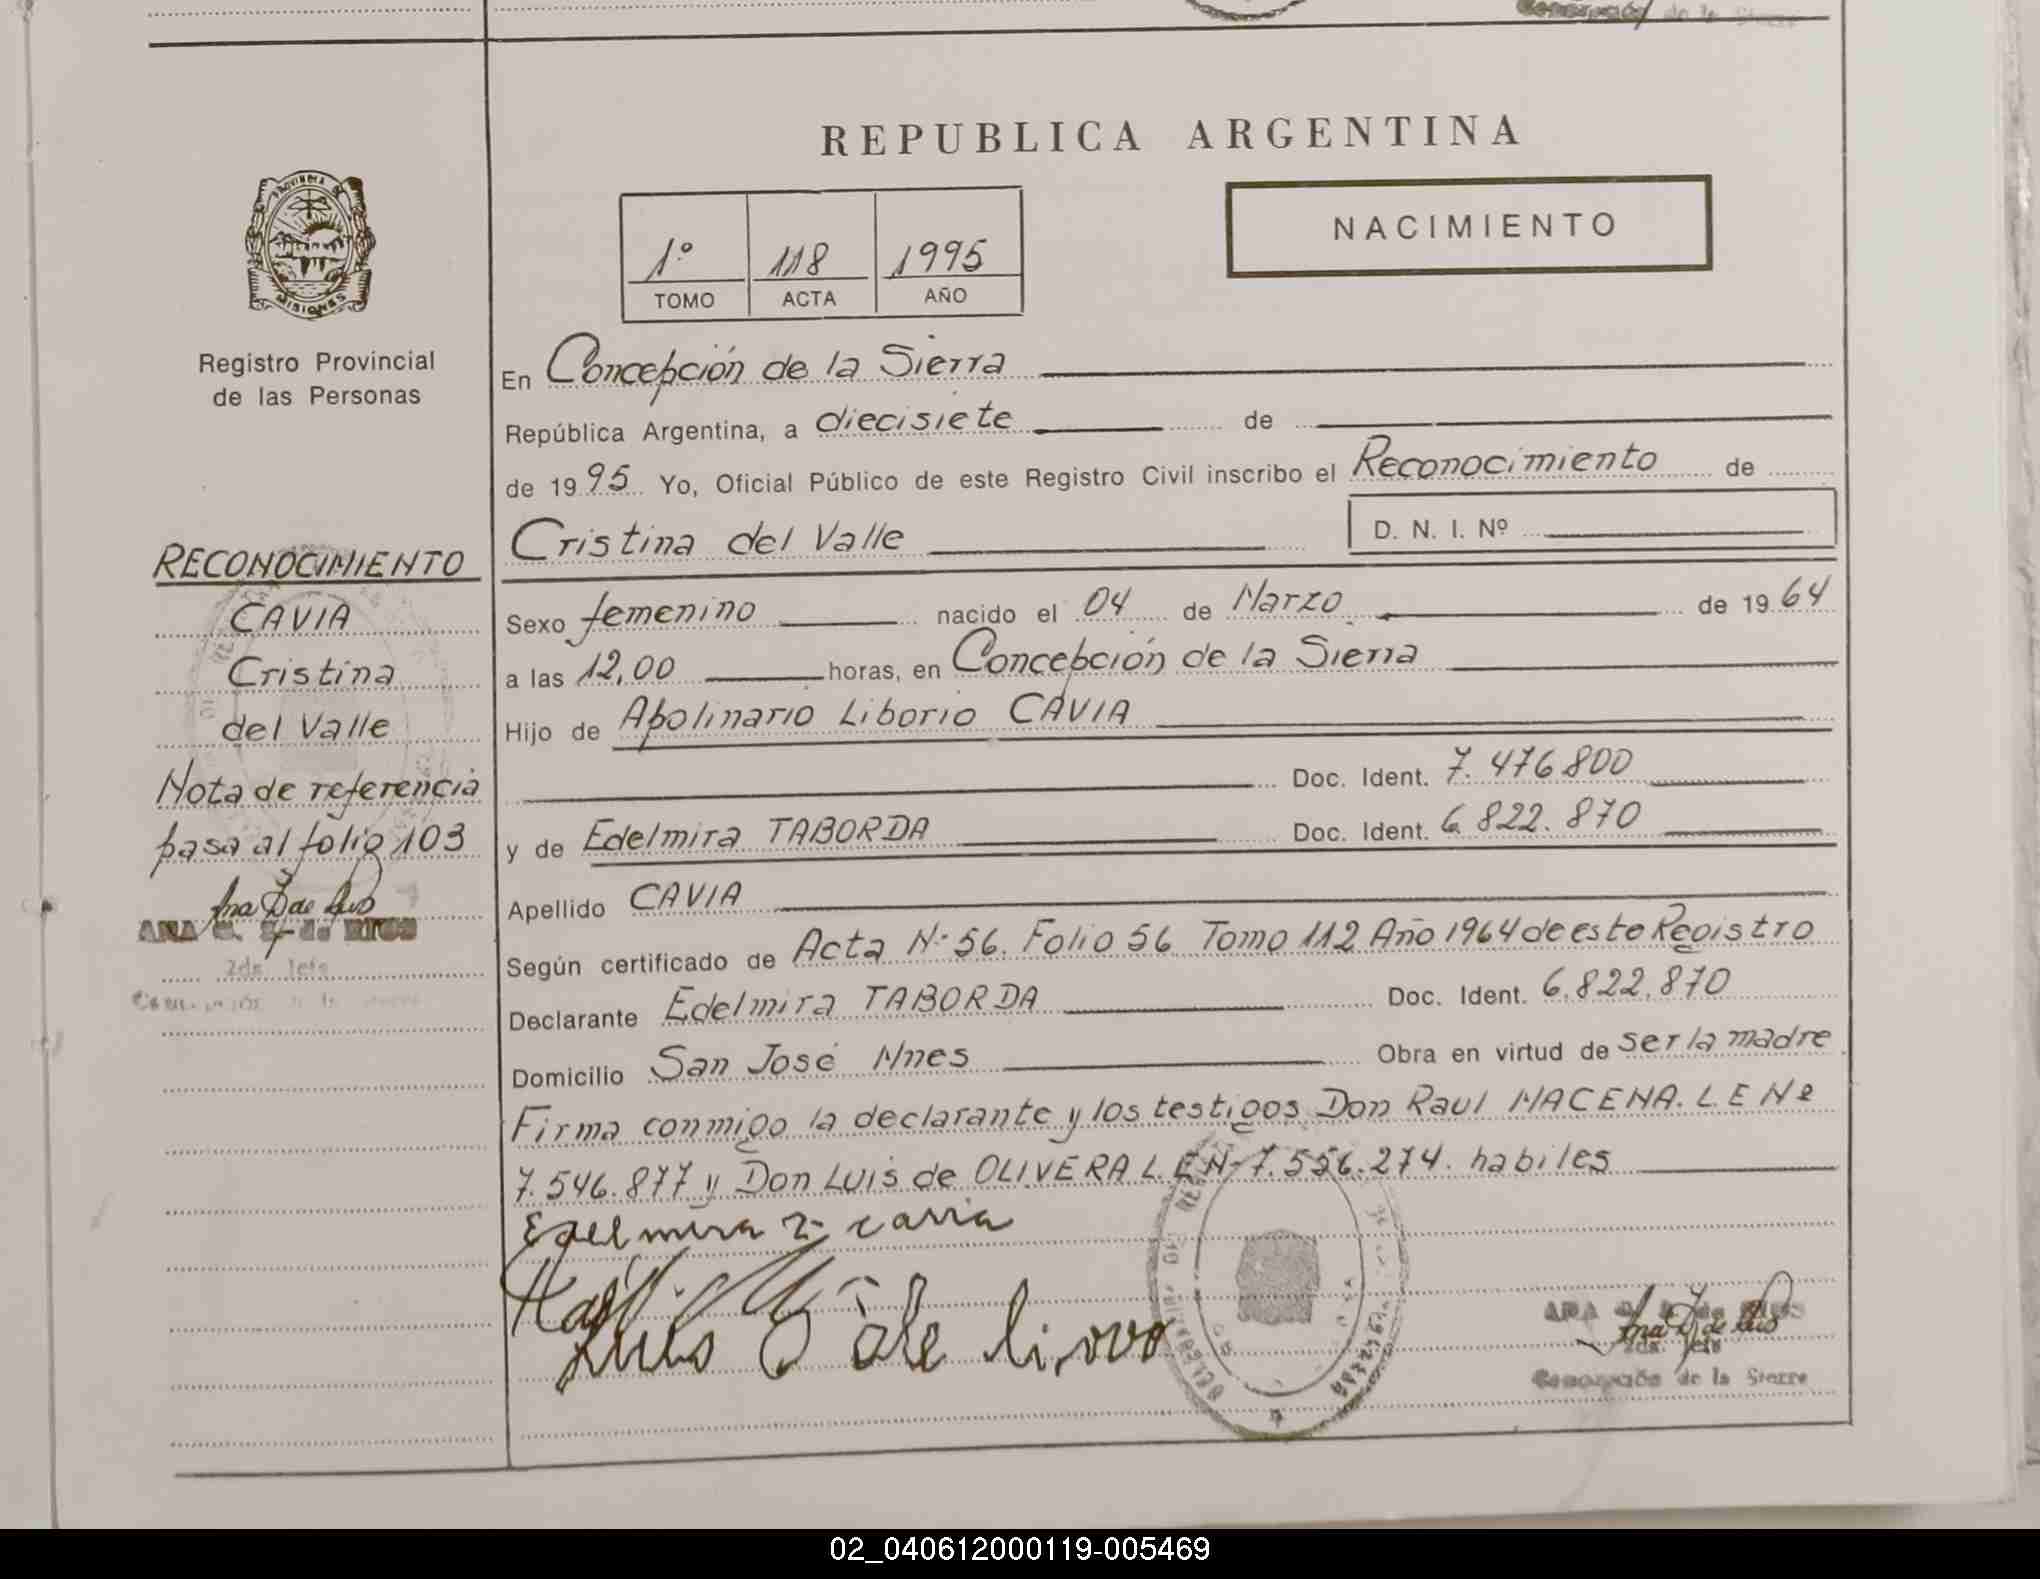 Concepción de la Sierra
REPUBLICA ARGENTINA
PROVINCIA DE
MISIONES
1º 118 1995
TOMO ACTA AÑO
NACIMIENTO
Registro Provincial
de las Personas
En Concepción de la Sierra
República Argentina, a diecisiete de
de 1995 Yo, Oficial Público de este Registro Civil inscribo el Reconocimiento de
Cristina del Valle D. N. I. Nº
RECONOCIMIENTO
CAVIA
Cristina
del Valle
Nota de referencia
pasa al folio 103
ANA de RIOS
2da. Jefe
Sexo femenino nacido el 04 de Marzo de 1964
a las 12,00 horas, en Concepción de la Sierra
Hijo de Apolinario Liborio CAVIA
Doc. Ident. 7.476.800
y de Edelmira TABORDA Doc. Ident. 6.822.870
Apellido CAVIA
Según certificado de Acta Nº 56. Folio 56 Tomo 112 Año 1964 de este Registro
Declarante Edelmira TABORDA Doc. Ident. 6.822.870
Domicilio San José Mnes Obra en virtud de ser la madre
Firma conmigo la declarante y los testigos Don Raul MACENA. L E Nº
7.546.877 y Don Luis de OLIVERA L.E Nº 7.556.274. habiles
Edelmira cavia
Luis de
ANA de RIOS
2da. Jefe
Concepción de la Sierra
02_040612000119-005469